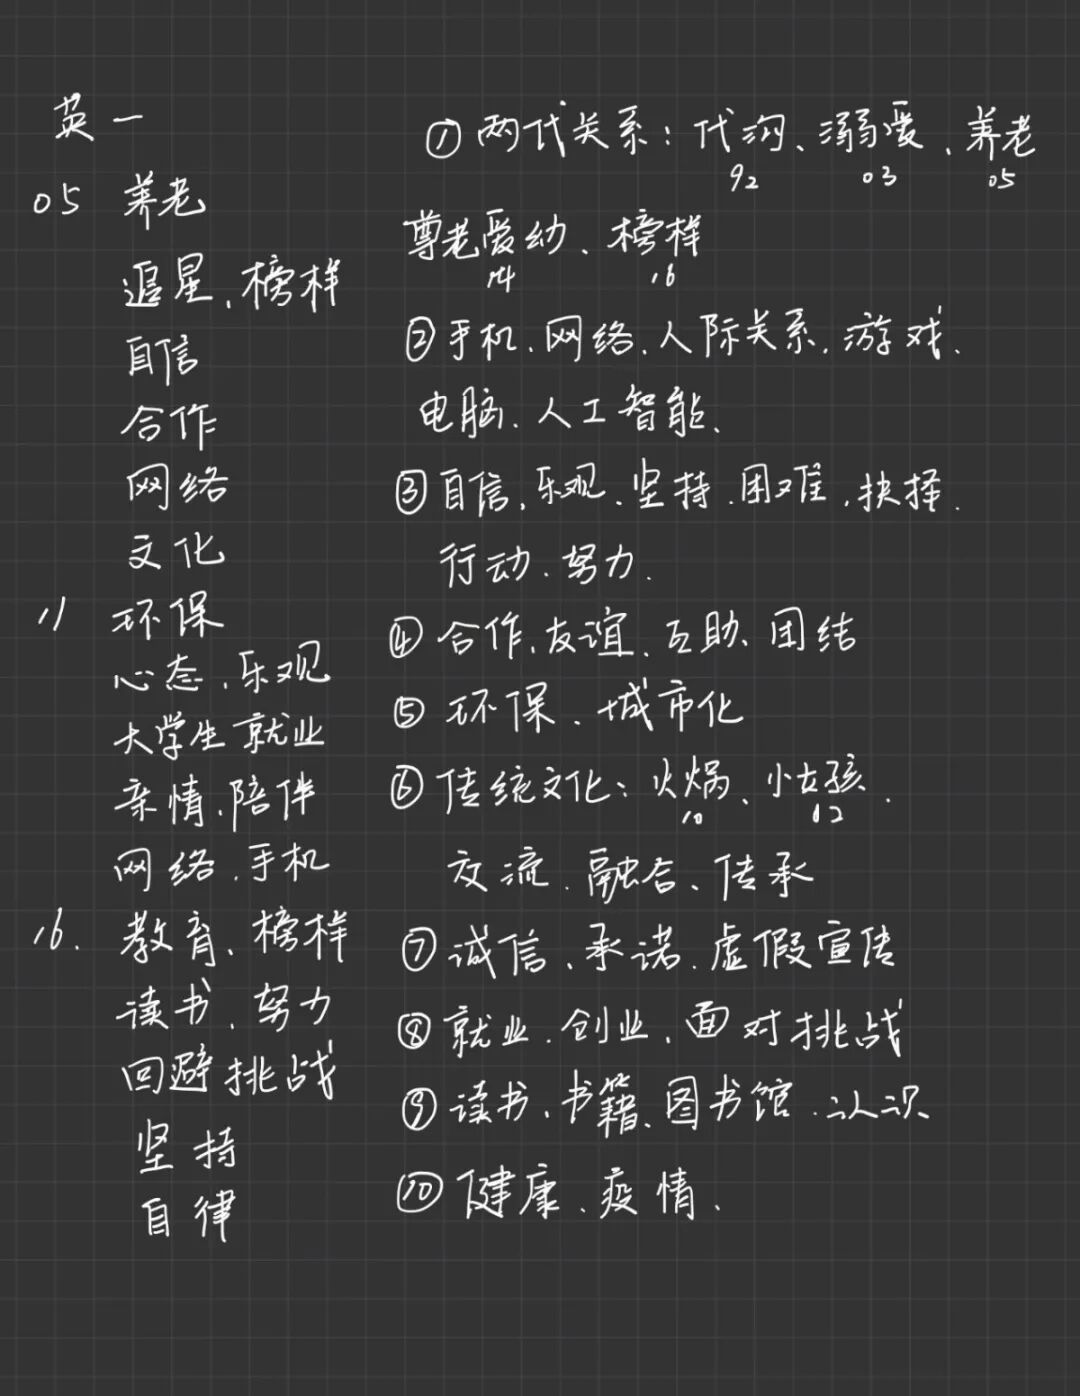 英一
05 养老
追星、榜样
自信
合作
网络
文化
11 环保
心态、乐观
大学生就业
亲情、陪伴
网络、手机
16. 教育、榜样
读书、努力
回避挑战
坚持
自律
①两代关系：代沟、溺爱、养老
92 03 05
尊老爱幼、榜样
14 16
②手机、网络、人际关系、游戏、
电脑、人工智能、
③自信、乐观、坚持、困难、抉择、
行动、努力、
④合作、友谊、互助、团结
⑤环保、城市化
⑥传统文化：火锅、小女孩、
10 02
交流、融合、传承
⑦诚信、承诺、虚假宣传
⑧就业、创业、面对挑战
⑨读书、书籍、图书馆、认识
⑩健康、疫情、